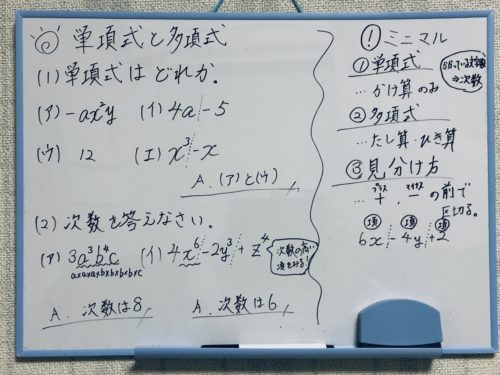 単項式と多項式
(1) 単項式はどれか.
(ア) -ax²y (イ) 4a-5
(ウ) 12 (エ) x³-x
A. (ア)と(ウ)
(2) 次数を答えなさい.
(ア) 3a³b⁴c (イ) 4x⁶-2y³+z⁴
a×a×a×b×b×b×b×c
次数の高い
項をみる!
A. 次数は8 A. 次数は6
! ミニマル
① 単項式
…かけ算のみ
かかっている文字の数
⇒次数
② 多項式
…たし算・ひき算
③ 見分け方
プラス マイナス
… +, - の前で
区切る.
項 項 項
6x-4y+2